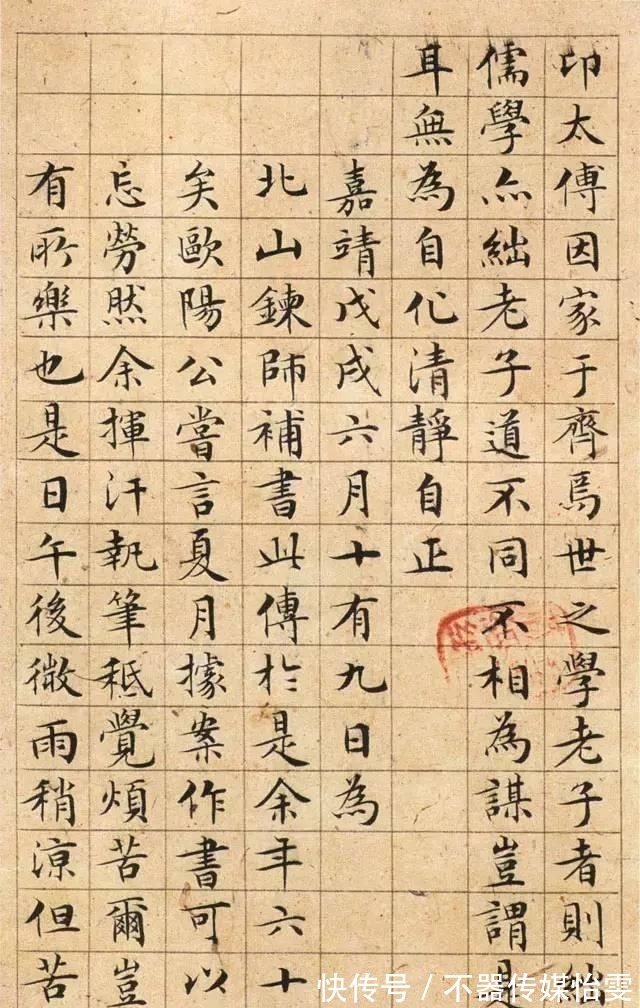 卬太傅因家于齊焉世之學老子者則
儒學亦絀老子道不同不相為謀豈謂
耳無為自化清靜自正
嘉靖戊戌六月十有九日為
北山鍊師補書此傳於是余年六十
矣歐陽公嘗言夏月據案作書可以
忘勞然余揮汗執筆秖覺煩苦爾豈
有所樂也是日午後微雨稍涼但苦
快传号/不器传媒怡雯